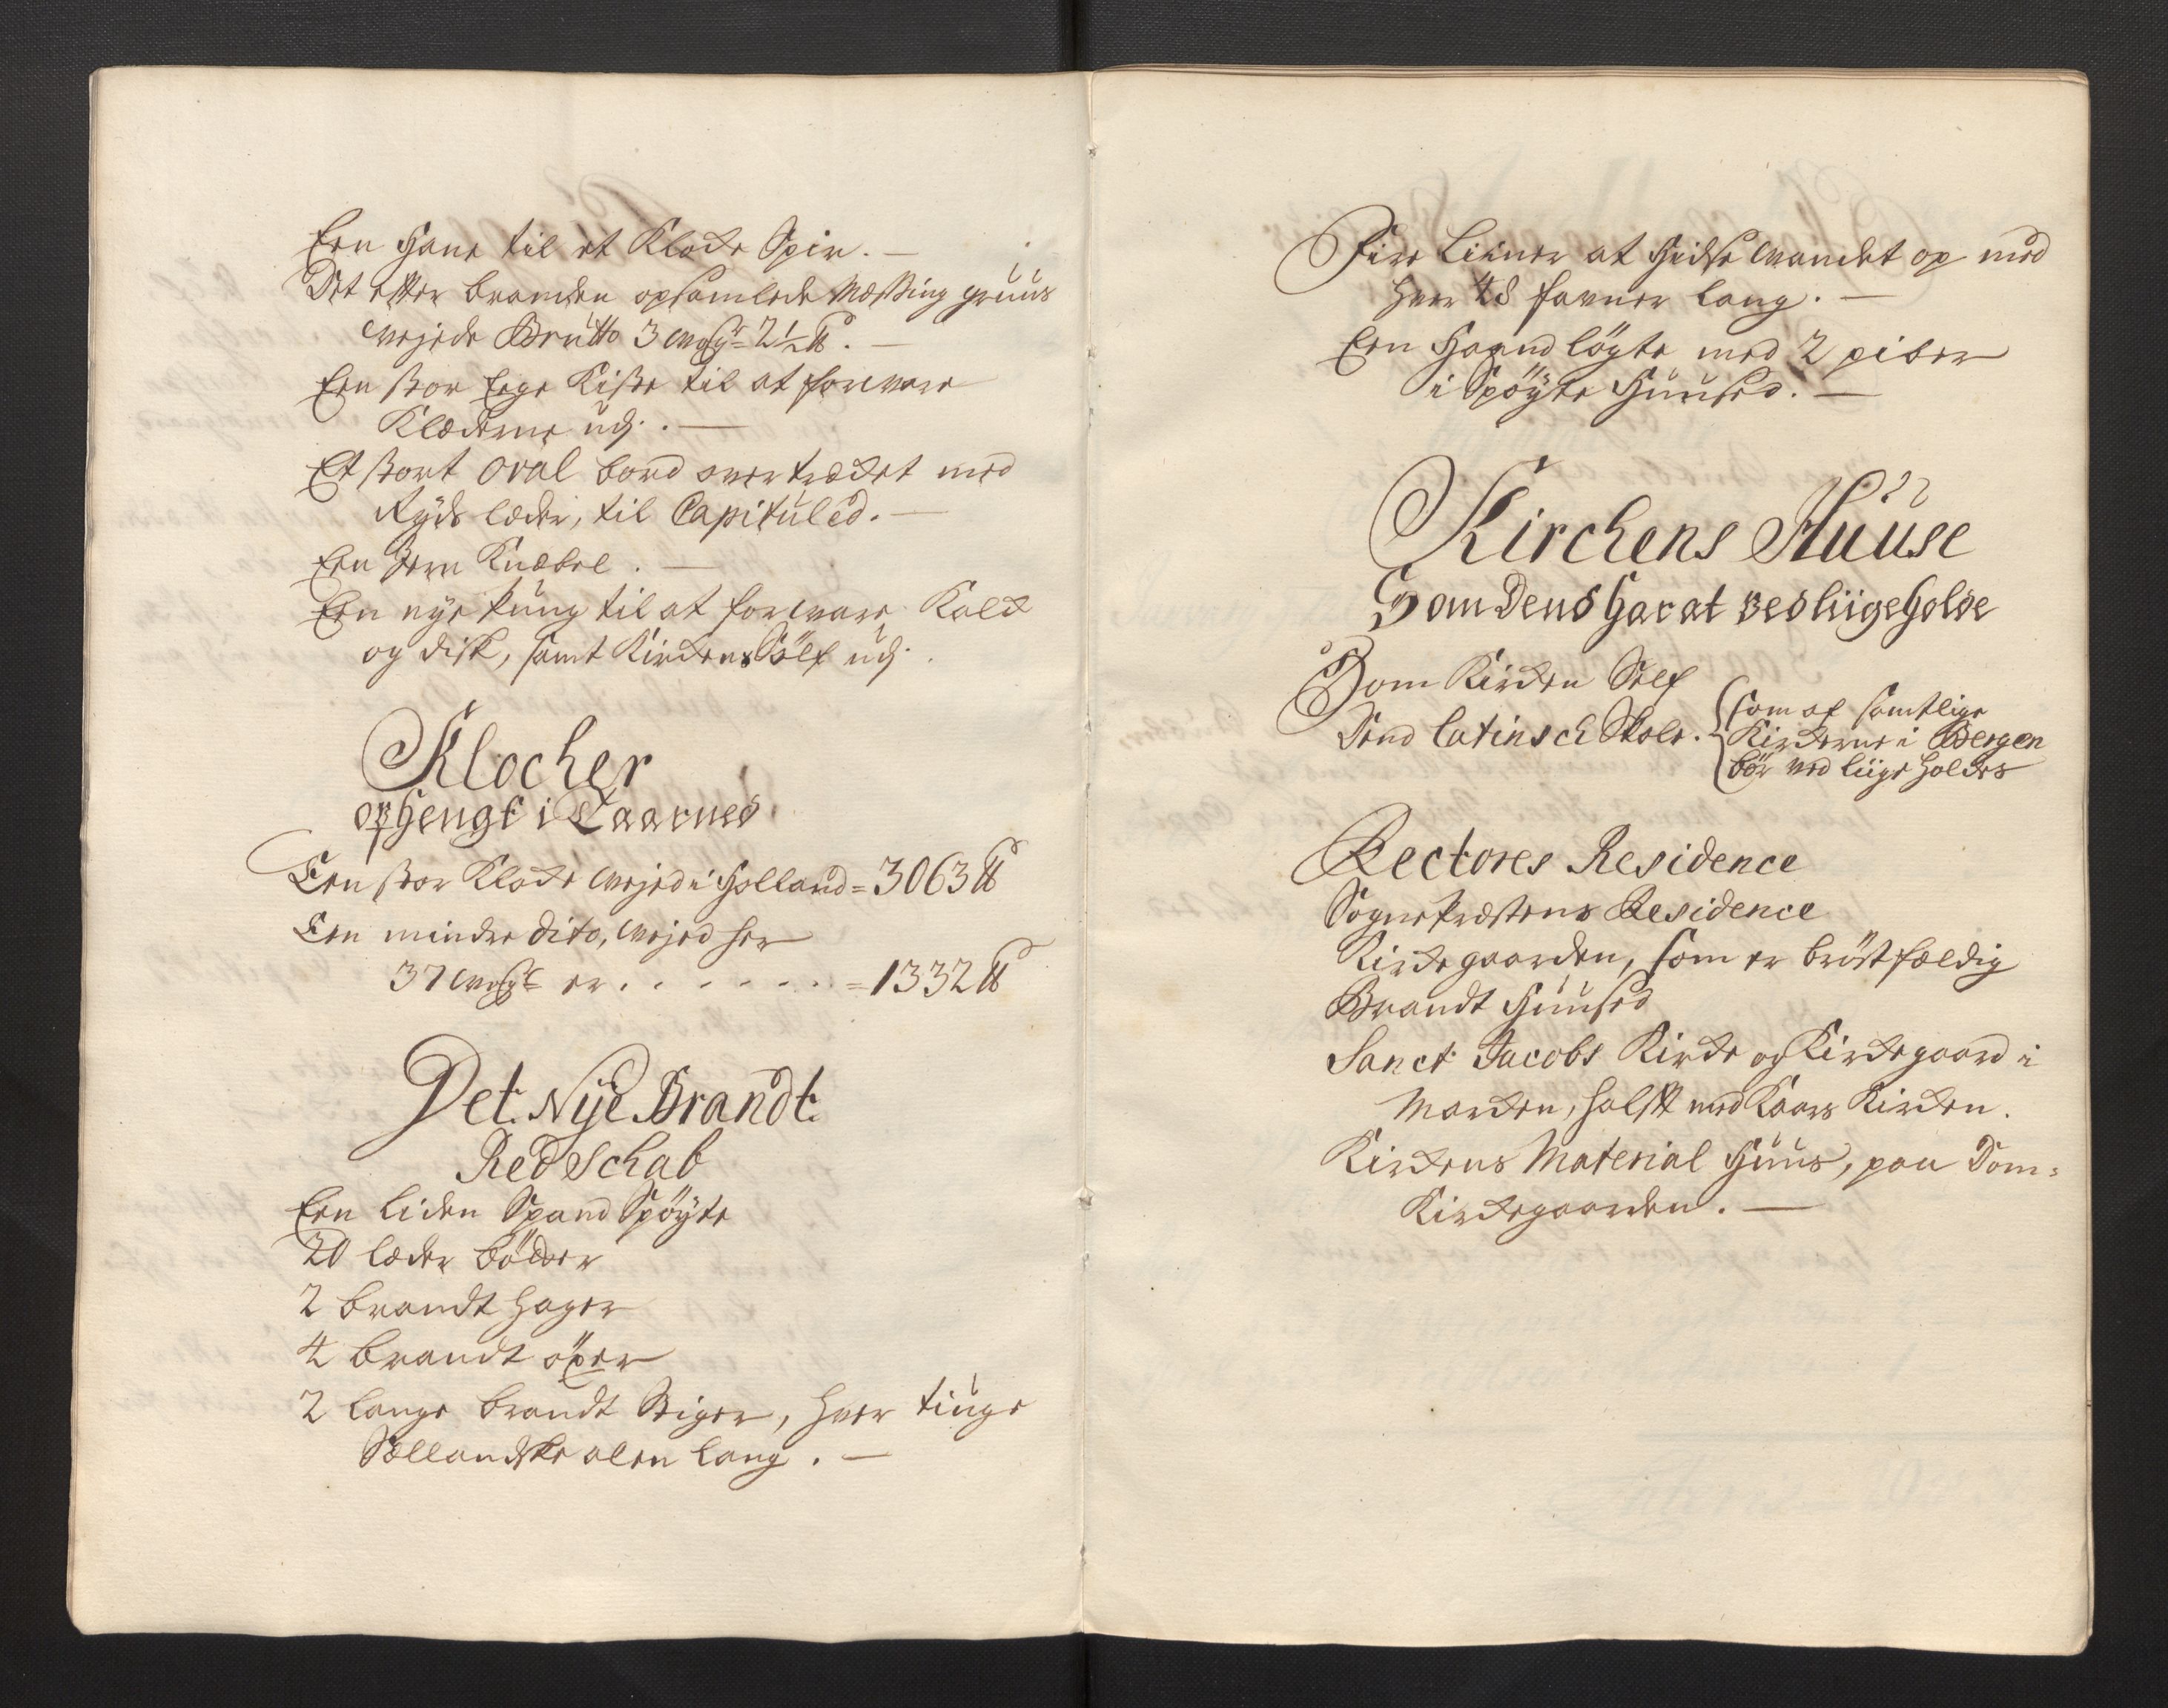 Een Hane til et Klocke Spir. —
Det efter branden opsamlede Messing gruus
wejede Brutto 3 Wog: 2½ ℔. —
Een stor Eege Kiste til at forware
Klæderne udj. —
Et stort oval bord overtrecket med
Ryds læder, til Capituled. —
Een Jern Knebel. —
Een nye pung til at forware Kalck
og disk, samt Kirckens Sölf udj.
Klocher
ophengt i Taarned
Een stor Klocke wejed i Holland = 3063 ℔
Een mindre dito, wejed her
37 Wog: er . . . . . . . = 1332 ℔
Det Nye Brandt
Redschab
Een liden Spand Spöyte
20 læder bötter
2 brandt hager
4 brandt öxer
2 lange brandt Stiger, hver tiuge
Sællandske alen lang. —
Fire Liiner at Hidse Wandet op med
hver 48 favner lang. —
Een Haand löyte med 2 piber
i Spöyte Huused. —
Kirchens Huuse
Som Dend Har at vedliigeholde
Dom Kircken Self
Dend latinsch Skole. { som af samtlige
Kirckerne i Bergen
bör ved liige holdes
Rectores Residence
Sogneprestens Residence
Kirckegaarden, som er bröstfældig
Brandt Huused
Sanct Jacobs Kircke og Kirckegaard i
Marcken, halft med Kaars Kircken.
Kirckens Material Huus, paa Dom=
Kirckegaarden. —